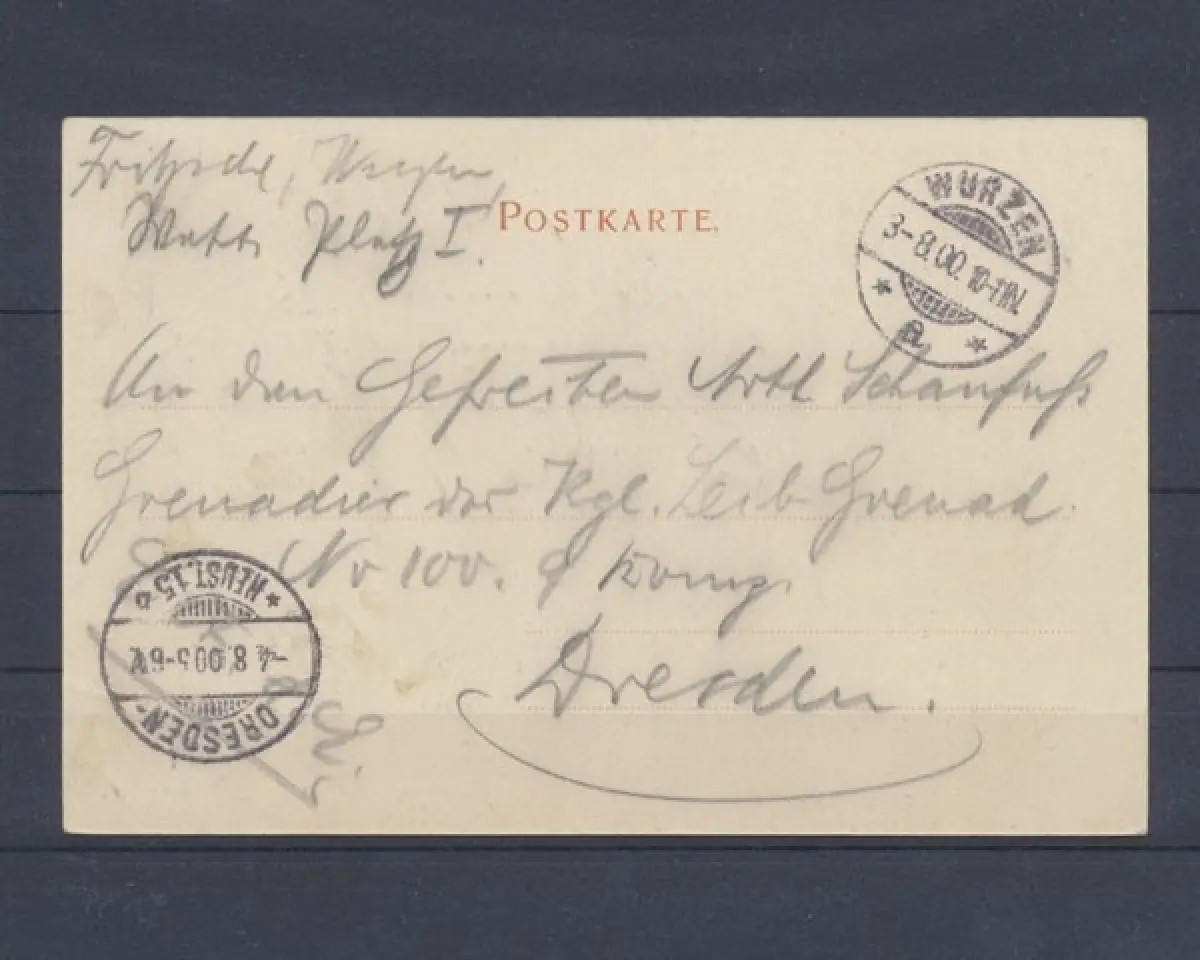 Fritzsche, Wurzen,
Platz I.
POSTKARTE.
WURZEN
3-8.00. 10-11N.
a
An den Gefreiten Arth Schaufuß
Grenadier der Kgl. Leib Grenad.
No 100. 9 Komp.
Dresden.
DRESDEN-
-4. 8. 00 5-6V.
NEUST. 15 b